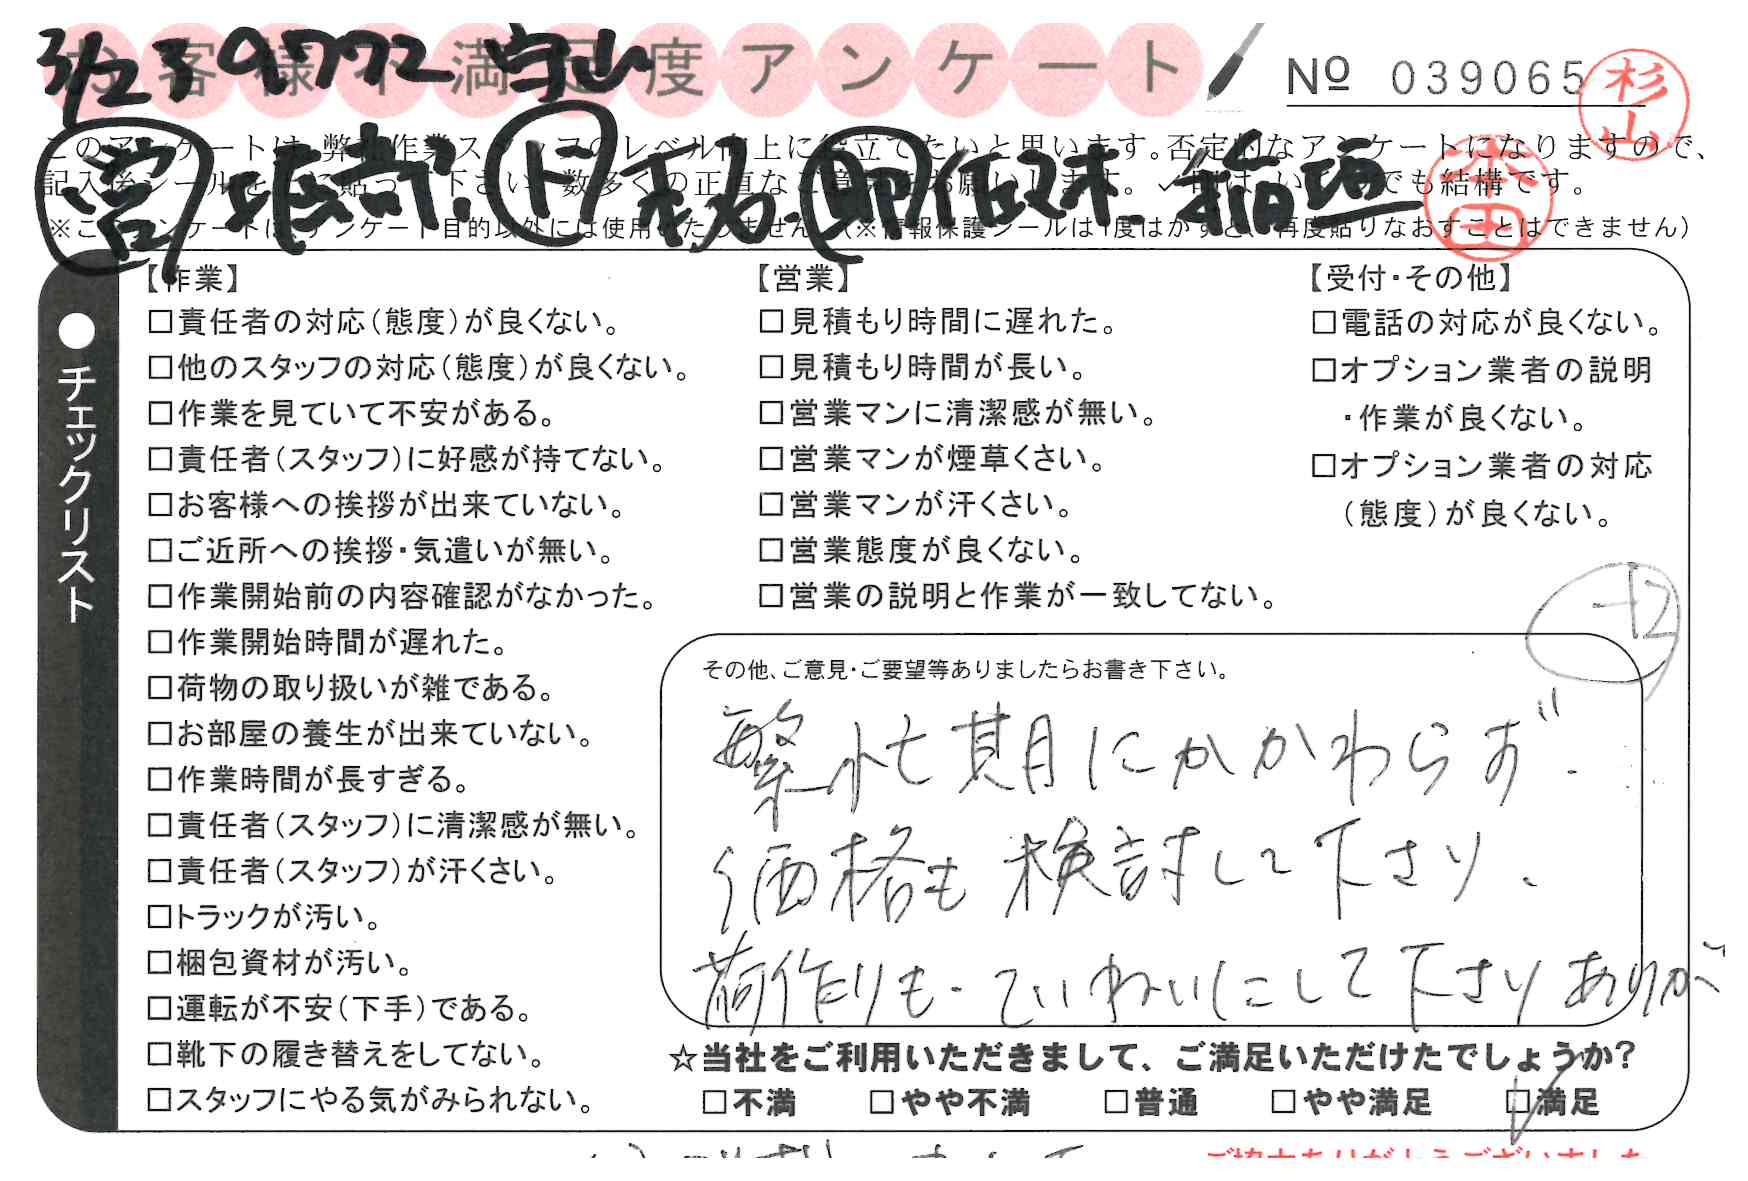 お客様不満足度アンケート
3/23 9772 守山
№ 039065
杉山
このアンケートは、弊社作業スタッフのレベル向上に役立てたいと思います。否定的なアンケートになりますので、
記入後シールを上に貼って下さい。数多くの正直なご意見をお願いします。✓印は、いくつでも結構です。
※このアンケートは、アンケート目的以外には使用いたしません。(※情報保護シールは1度はがすと、再度貼りなおすことはできません)
営 ド 助 稲垣
●チェックリスト
【作業】
□責任者の対応(態度)が良くない。
□他のスタッフの対応(態度)が良くない。
□作業を見ていて不安がある。
□責任者(スタッフ)に好感が持てない。
□お客様への挨拶が出来ていない。
□ご近所への挨拶・気遣いが無い。
□作業開始前の内容確認がなかった。
□作業開始時間が遅れた。
□荷物の取り扱いが雑である。
□お部屋の養生が出来ていない。
□作業時間が長すぎる。
□責任者(スタッフ)に清潔感が無い。
□責任者(スタッフ)が汗くさい。
□トラックが汚い。
□梱包資材が汚い。
□運転が不安(下手)である。
□靴下の履き替えをしてない。
□スタッフにやる気がみられない。
【営業】
□見積もり時間に遅れた。
□見積もり時間が長い。
□営業マンに清潔感が無い。
□営業マンが煙草くさい。
□営業マンが汗くさい。
□営業態度が良くない。
□営業の説明と作業が一致してない。
【受付・その他】
□電話の対応が良くない。
□オプション業者の説明
・作業が良くない。
□オプション業者の対応
(態度)が良くない。
+2
その他、ご意見・ご要望等ありましたらお書き下さい。
繁忙期にかかわらず、
価格も検討して下さり、
荷作りも、ていねいにして下さりありが
☆当社をご利用いただきまして、ご満足いただけたでしょうか?
□不満 □やや不満 □普通 □やや満足 ☑満足
ご協力ありがとうございました